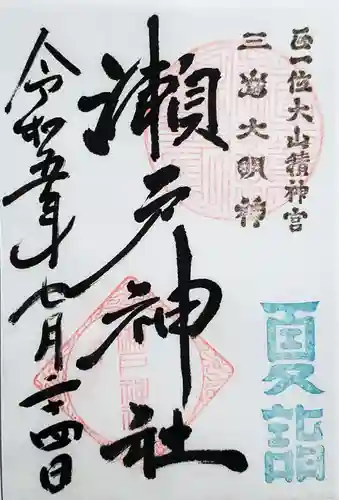 正一位大山積神宮
三嶋大明神
瀬戸神社
令和五年七月二十四日
夏詣